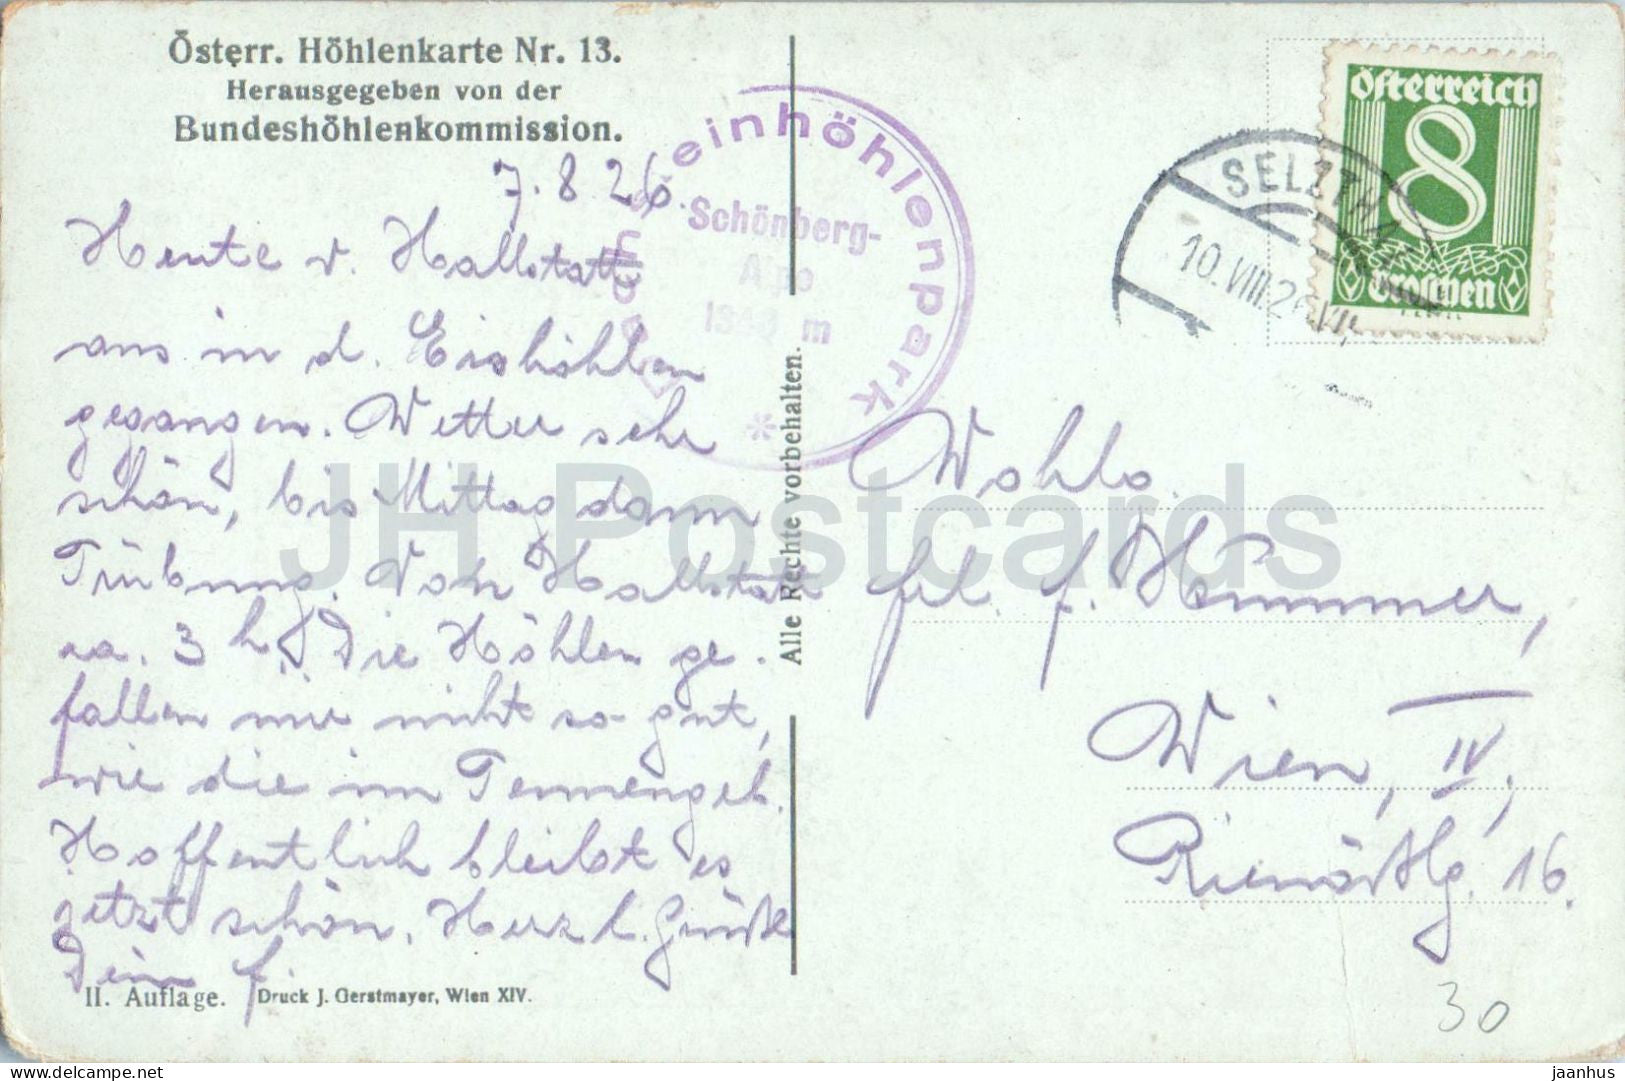 Österr. Höhlenkarte Nr. 13.
Herausgegeben von der
Bundeshöhlenkommission.
7. 8. 26.
Heute v. Hallstatt
aus in d. Eishöhlen
gegangen. Wetter sehr
schön, bis Mittag dann
Trübung. Von Hallstatt
ca. 3 h. Die Höhlen ge-
fallen mir nicht so gut,
wie die im Tennengeb.
Hoffentlich bleibt es
jetzt schön. Herzl. Grüße
Dein F.
II. Auflage. Druck J. Gerstmayer, Wien XIV.
Alle Rechte vorbehalten.
einhöhlenpark
Schönberg-
Alpe
m
Österreich
8
Groschen
SELZTHA
10.VIII.26
Wohlg.
Frl. F. Hummer,
Wien, IV.,
16.
30
JH Postcards
jaanhus